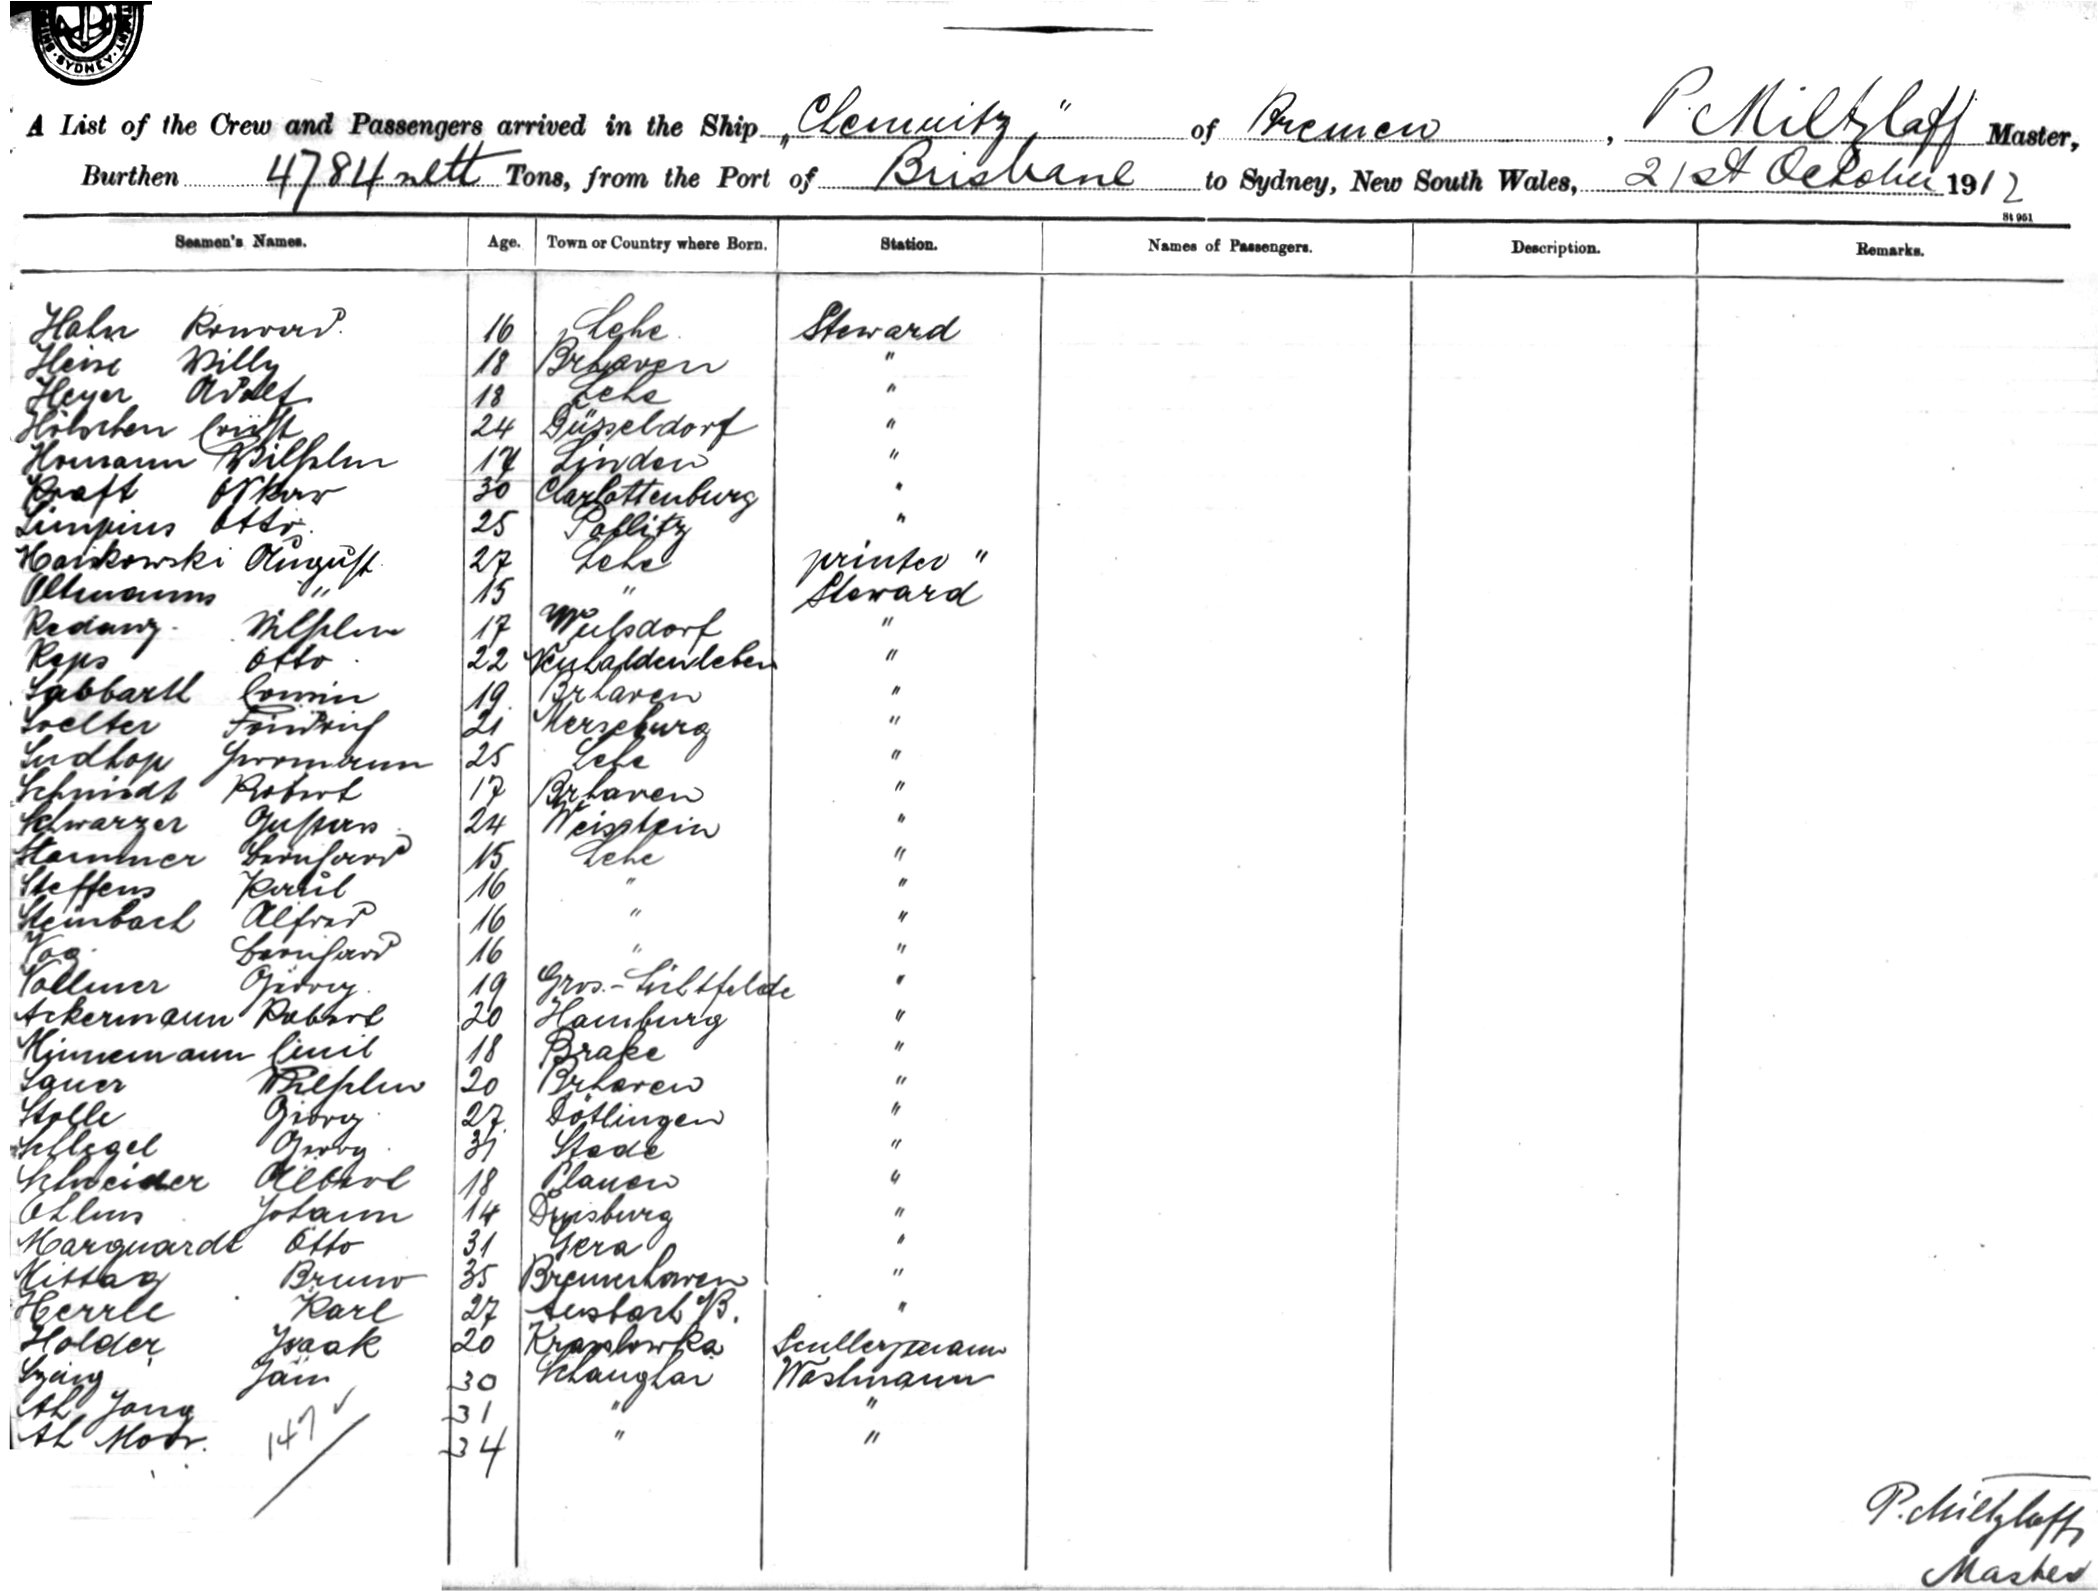 SYDNEY
A List of the Crew and Passengers arrived in the Ship „Chemnitz" of Bremen, P. Miltzlaff Master,
Burthen 4784 nett Tons, from the Port of Brisbane to Sydney, New South Wales, 21st October 1912
St 961
Seamen's Names. Age. Town or Country where Born. Station. Names of Passengers. Description. Remarks.
Hahn Konrad. 16 Lehe Steward
Heise Willy 18 Brhaven "
Heyer Adolf 18 Lehe "
Hölschen Ernst 24 Düsseldorf "
Homann Wilhelm 17 Linden "
Kraft Oskar 30 Charlottenburg "
Limpius Otto. 25 Pablitz "
August 27 Lehe printer "
Oltmanns " 15 " Steward
Redanz. Wilhelm 17 Wulsdorf "
Reps Otto 22 Neuhaldensleben "
Sabbarth Erwin 19 Brhaven "
Soelter Friedrich 21 Merseburg "
Sudhop Hermann 25 Lehe "
Schmidt Robert 17 Brhaven "
Schwarzer Gustav 24 Weisstein "
Stammer Bernhard 15 Lehe "
Steffens Karl 16 " "
Steinbach Alfred 16 " "
Vog Bernhard 16 " "
Vollmer Georg. 19 Gros.-Lichtfelde "
Ackermann Robert 20 Hamburg "
Minnemann Emil 18 Brake "
Sauer Wilhelm 20 Brhaven "
Stolle Georg 27 Dötlingen "
Schlegel Georg 31 Stade "
Schneider Albert 18 Plauen "
Ohlms Johann 14 Duisburg "
Marquardt Otto 31 Gera "
Mittag Bruno 35 Bremerhaven "
Herrle Karl 27 Ansbach /B. "
Holder Isaak 20 Kraplowka Scullerymann
Jäin 30 Schanghai Washmann
Ah Jong 31 " "
Ah Moor. 34 " "
147 ✓
P. Miltzlaff
Master